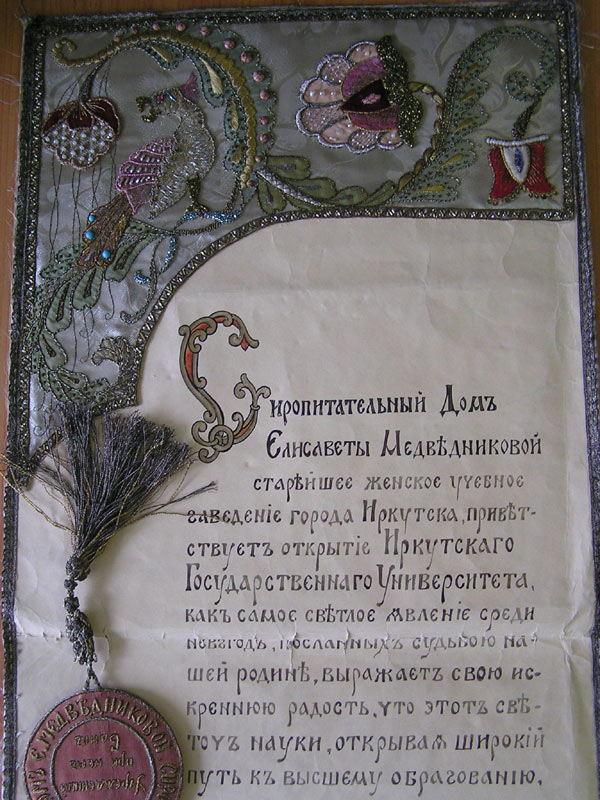 Сиропитательный Домъ
Елисаветы Медвѣдниковой
старѣйшее женское учебное
заведеніе города Иркутска, привѣт-
ствуетъ открытіе Иркутскаго
Государственнаго Университета,
какъ самое свѣтлое явленіе среди
невзгодъ, посланныхъ судьбою на-
шей родинѣ, выражаетъ свою ис-
креннюю радость, что этотъ свѣ-
точъ науки, открывая широкій
путь къ высшему образованію,
Е. МЕДВѢДНИКОВОЙ
Учрежденный
при немъ
Банкъ